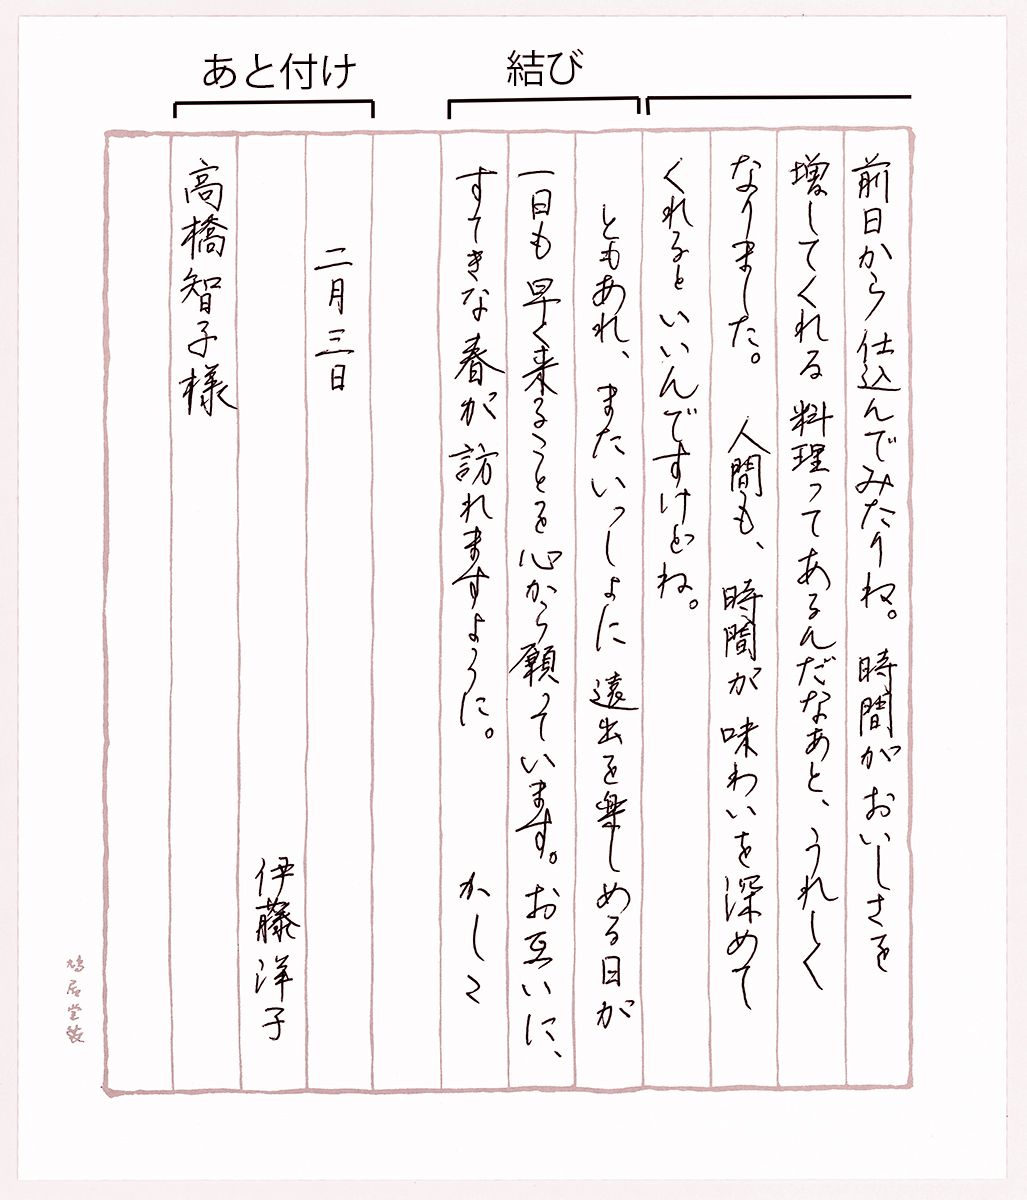 結び
あと付け
前日から仕込んでみたりね。時間がおいしさを
増してくれる料理ってあるんだなあと、うれしく
なりました。人間も、時間が味わいを深めて
くれるといいんですけどね。
ともあれ、またいっしょに遠出を楽しめる日が
一日も早く来ることを心から願っています。お互いに、
すてきな春が訪れますように。 かしこ
二月三日
伊藤洋子
高橋智子様
鳩居堂製